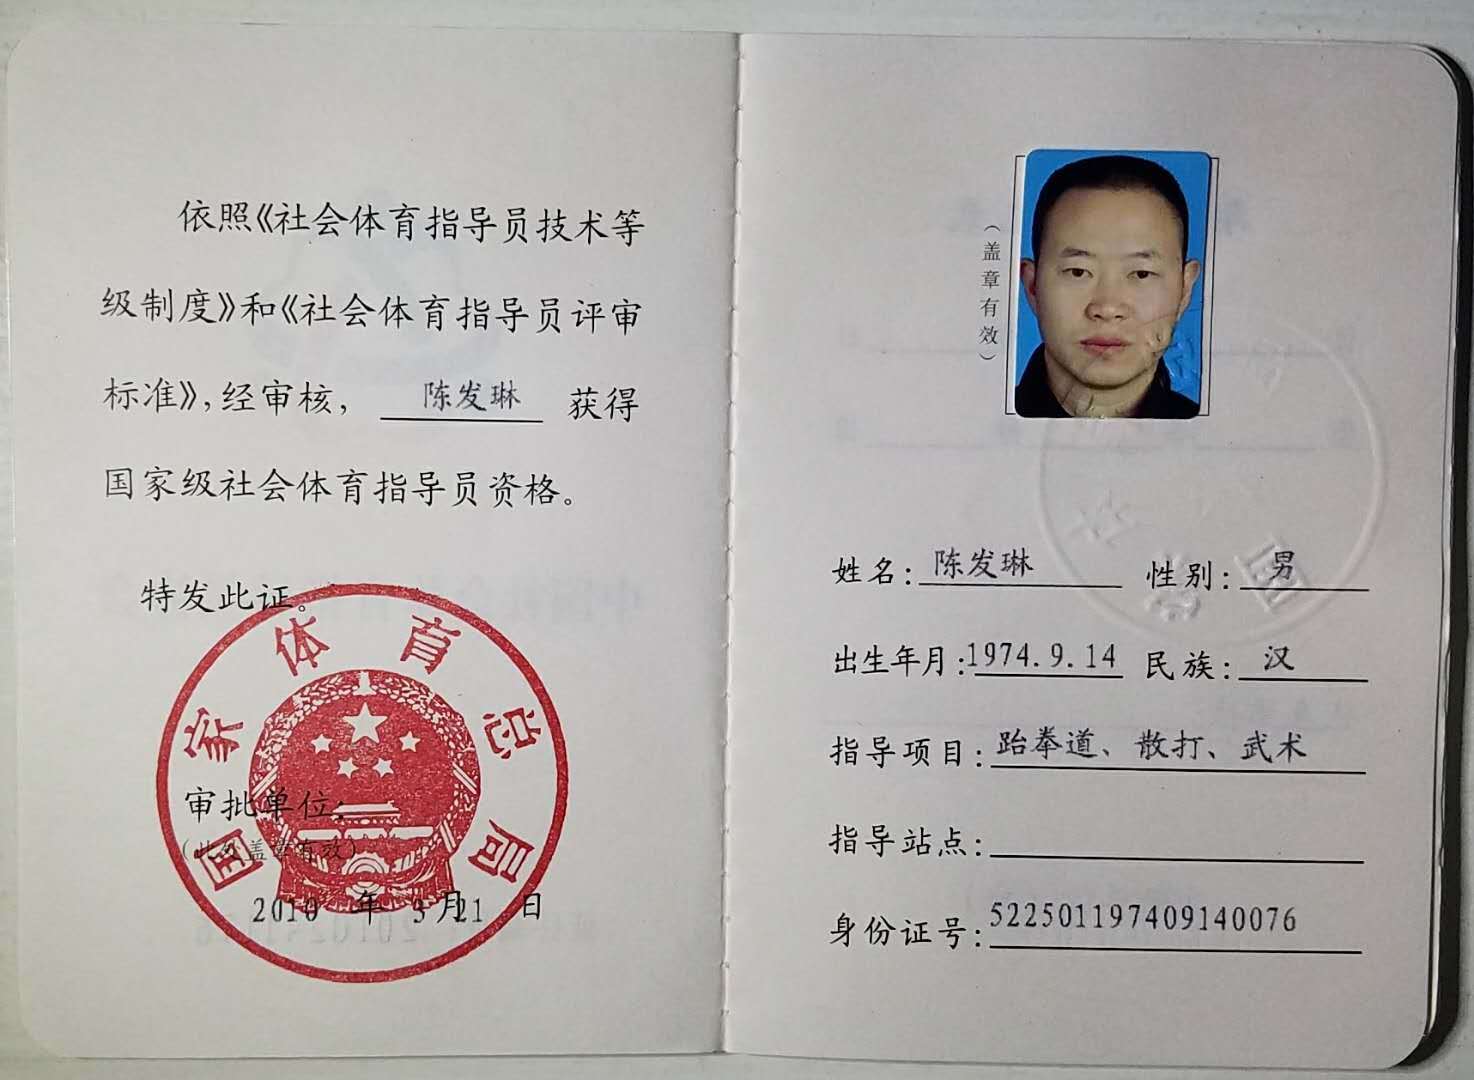 依照《社会体育指导员技术等
级制度》和《社会体育指导员评审
标准》,经审核, 陈发琳 获得
国家级社会体育指导员资格。
特发此证。
国家体育总局
审批单位:
(此处盖章有效)
2010 年 3月21 日
(盖章有效)
姓名: 陈发琳 性别: 男
出生年月: 1974.9.14 民族: 汉
指导项目: 跆拳道、散打、武术
指导站点:
身份证号: 522501197409140076